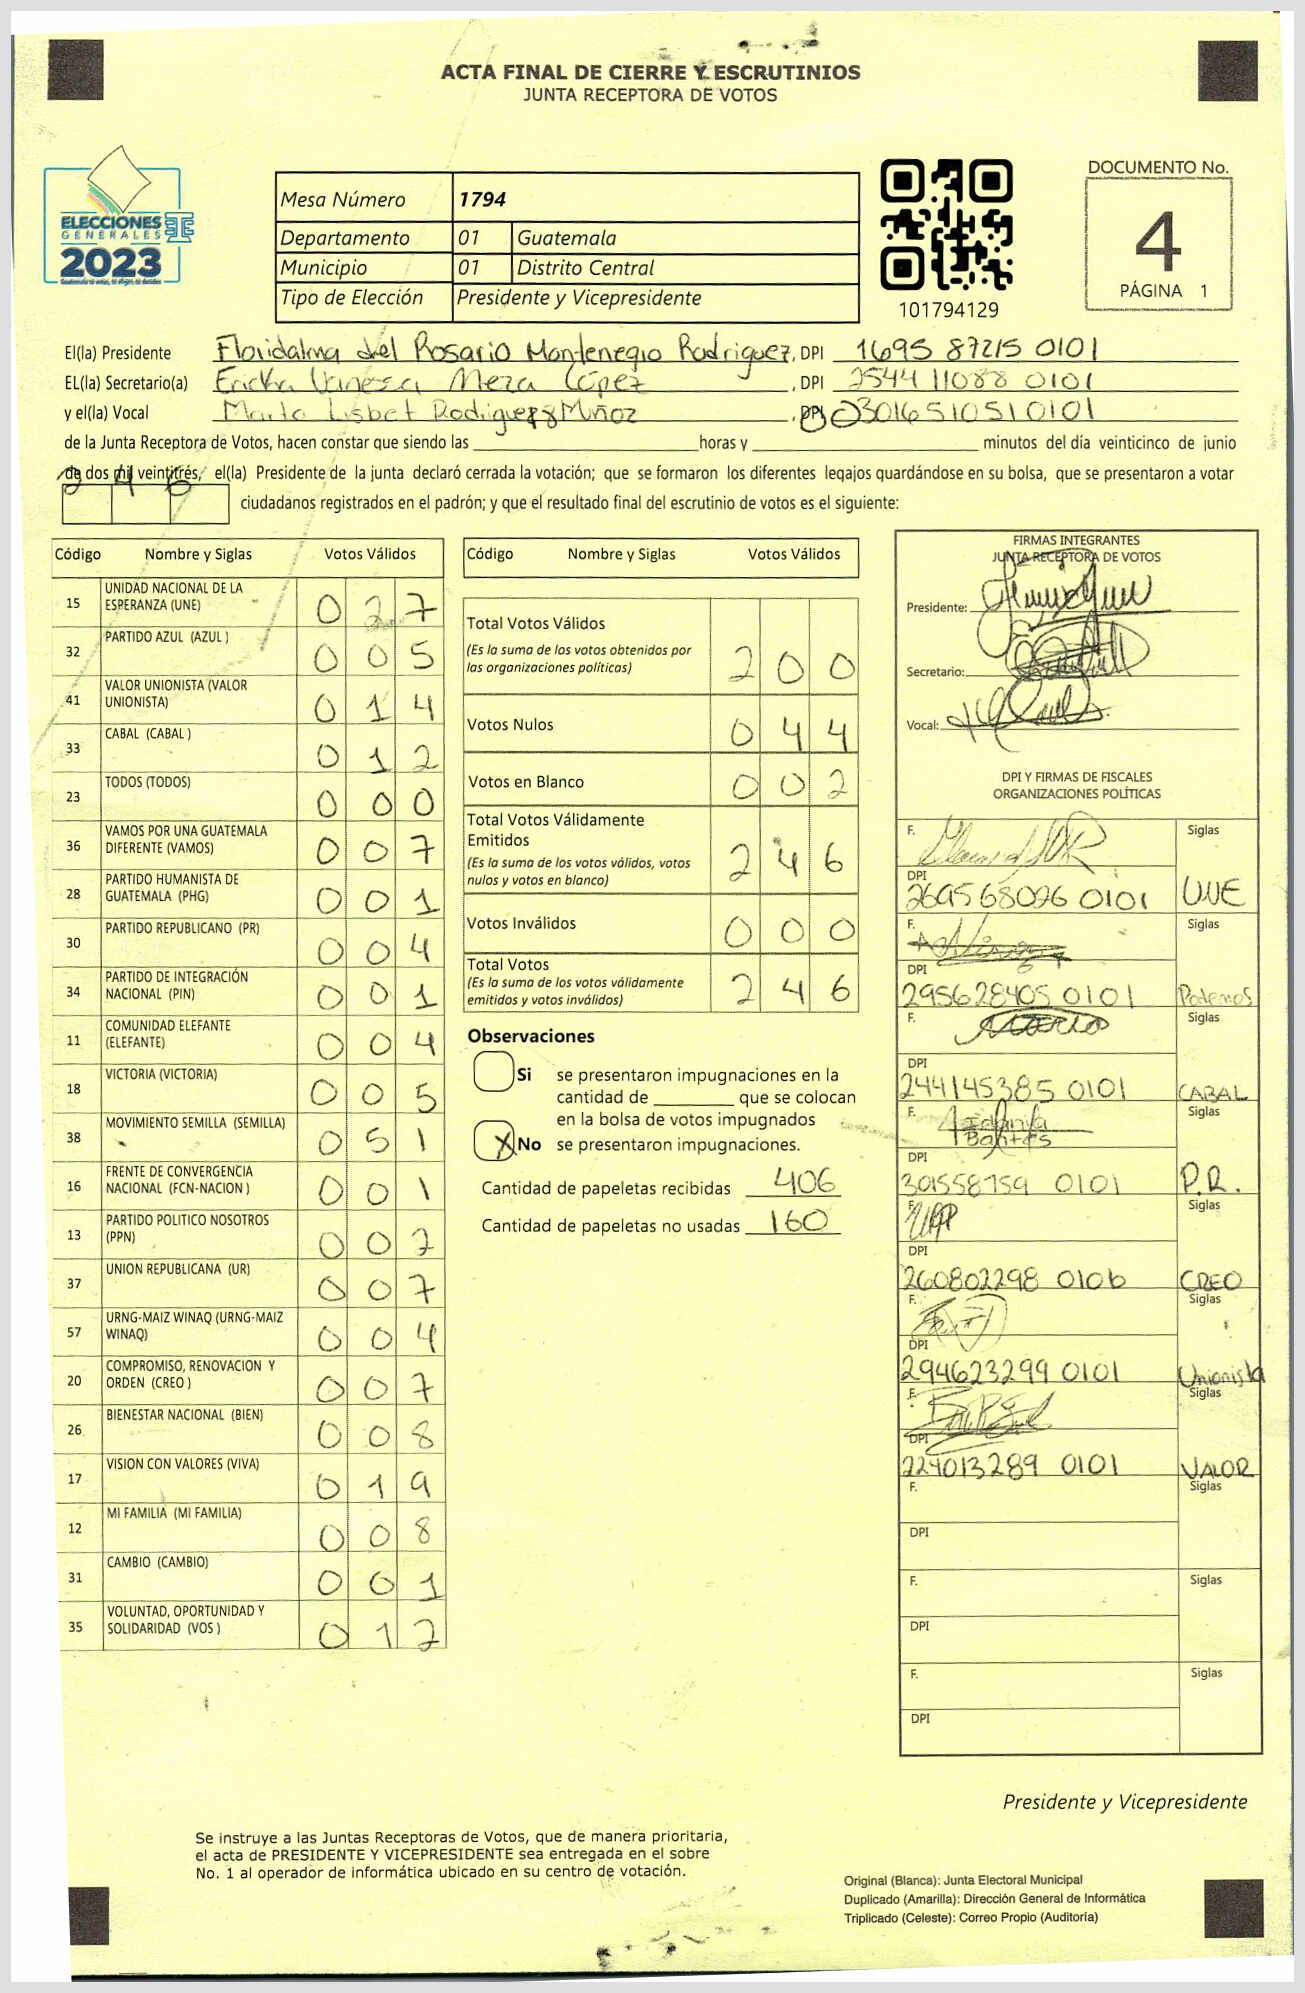 ACTA FINAL DE CIERRE Y ESCRUTINIOS
JUNTA RECEPTORA DE VOTOS
ELECCIONES
GENERALES
2023
Mesa Número 1794
Departamento 01 Guatemala
Municipio 01 Distrito Central
Tipo de Elección Presidente y Vicepresidente
101794129
DOCUMENTO No.
4
PÁGINA 1
El(la) Presidente Floridalma del Rosario Montenegro Rodriguez, DPI 1695 87215 0101
EL(la) Secretario(a) Ericka Vanesa Meza López, DPI 2544 11088 0101
y el(la) Vocal Marta Lisbet Rodriguez Muñoz, DPI 3016510510101
de la Junta Receptora de Votos, hacen constar que siendo las horas y minutos del día veinticinco de junio
de dos mil veintitrés, el(la) Presidente de la junta declaró cerrada la votación; que se formaron los diferentes legajos guardándose en su bolsa, que se presentaron a votar
246 ciudadanos registrados en el padrón; y que el resultado final del escrutinio de votos es el siguiente:
Código Nombre y Siglas Votos Válidos
15 UNIDAD NACIONAL DE LA ESPERANZA (UNE) 0 2 7
32 PARTIDO AZUL (AZUL ) 0 0 5
41 VALOR UNIONISTA (VALOR UNIONISTA) 0 1 4
33 CABAL (CABAL ) 0 1 2
23 TODOS (TODOS) 0 0 0
36 VAMOS POR UNA GUATEMALA DIFERENTE (VAMOS) 0 0 7
28 PARTIDO HUMANISTA DE GUATEMALA (PHG) 0 0 1
30 PARTIDO REPUBLICANO (PR) 0 0 4
34 PARTIDO DE INTEGRACIÓN NACIONAL (PIN) 0 0 1
11 COMUNIDAD ELEFANTE (ELEFANTE) 0 0 4
18 VICTORIA (VICTORIA) 0 0 5
38 MOVIMIENTO SEMILLA (SEMILLA) 0 5 1
16 FRENTE DE CONVERGENCIA NACIONAL (FCN-NACION ) 0 0 1
13 PARTIDO POLITICO NOSOTROS (PPN) 0 0 2
37 UNION REPUBLICANA (UR) 0 0 7
57 URNG-MAIZ WINAQ (URNG-MAIZ WINAQ) 0 0 4
20 COMPROMISO, RENOVACION Y ORDEN (CREO ) 0 0 7
26 BIENESTAR NACIONAL (BIEN) 0 0 8
17 VISION CON VALORES (VIVA) 0 1 9
12 MI FAMILIA (MI FAMILIA) 0 0 8
31 CAMBIO (CAMBIO) 0 0 1
35 VOLUNTAD, OPORTUNIDAD Y SOLIDARIDAD (VOS ) 0 1 2
Código Nombre y Siglas Votos Válidos
Total Votos Válidos 2 0 0
(Es la suma de los votos obtenidos por
las organizaciones políticas)
Votos Nulos 0 4 4
Votos en Blanco 0 0 2
Total Votos Válidamente
Emitidos 2 4 6
(Es la suma de los votos válidos, votos
nulos y votos en blanco)
Votos Inválidos 0 0 0
Total Votos 2 4 6
(Es la suma de los votos válidamente
emitidos y votos inválidos)
Observaciones
Si se presentaron impugnaciones en la
cantidad de que se colocan
en la bolsa de votos impugnados
X No se presentaron impugnaciones.
Cantidad de papeletas recibidas 406
Cantidad de papeletas no usadas 160
FIRMAS INTEGRANTES
JUNTA RECEPTORA DE VOTOS
Presidente:
Secretario:
Vocal:
DPI Y FIRMAS DE FISCALES
ORGANIZACIONES POLÍTICAS
F. Siglas
DPI 269568026 0101 UNE
F. Siglas
DPI 295628405 0101 Podemos
F. Mario Siglas
DPI 244145385 0101 CABAL
F. Siglas
DPI 301558759 0101 P.R.
F. Siglas
DPI 260802298 0106 CREO
F. Siglas
DPI 294623299 0101 Unionista
F. Siglas
DPI 224013289 0101 VALOR
F. Siglas
DPI
F. Siglas
DPI
F. Siglas
DPI
Presidente y Vicepresidente
Se instruye a las Juntas Receptoras de Votos, que de manera prioritaria,
el acta de PRESIDENTE Y VICEPRESIDENTE sea entregada en el sobre
No. 1 al operador de informática ubicado en su centro de votación.
Original (Blanca): Junta Electoral Municipal
Duplicado (Amarilla): Dirección General de Informática
Triplicado (Celeste): Correo Propio (Auditoría)